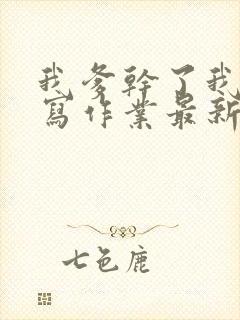 我爹幹了我
寫作業最新
七色鹿